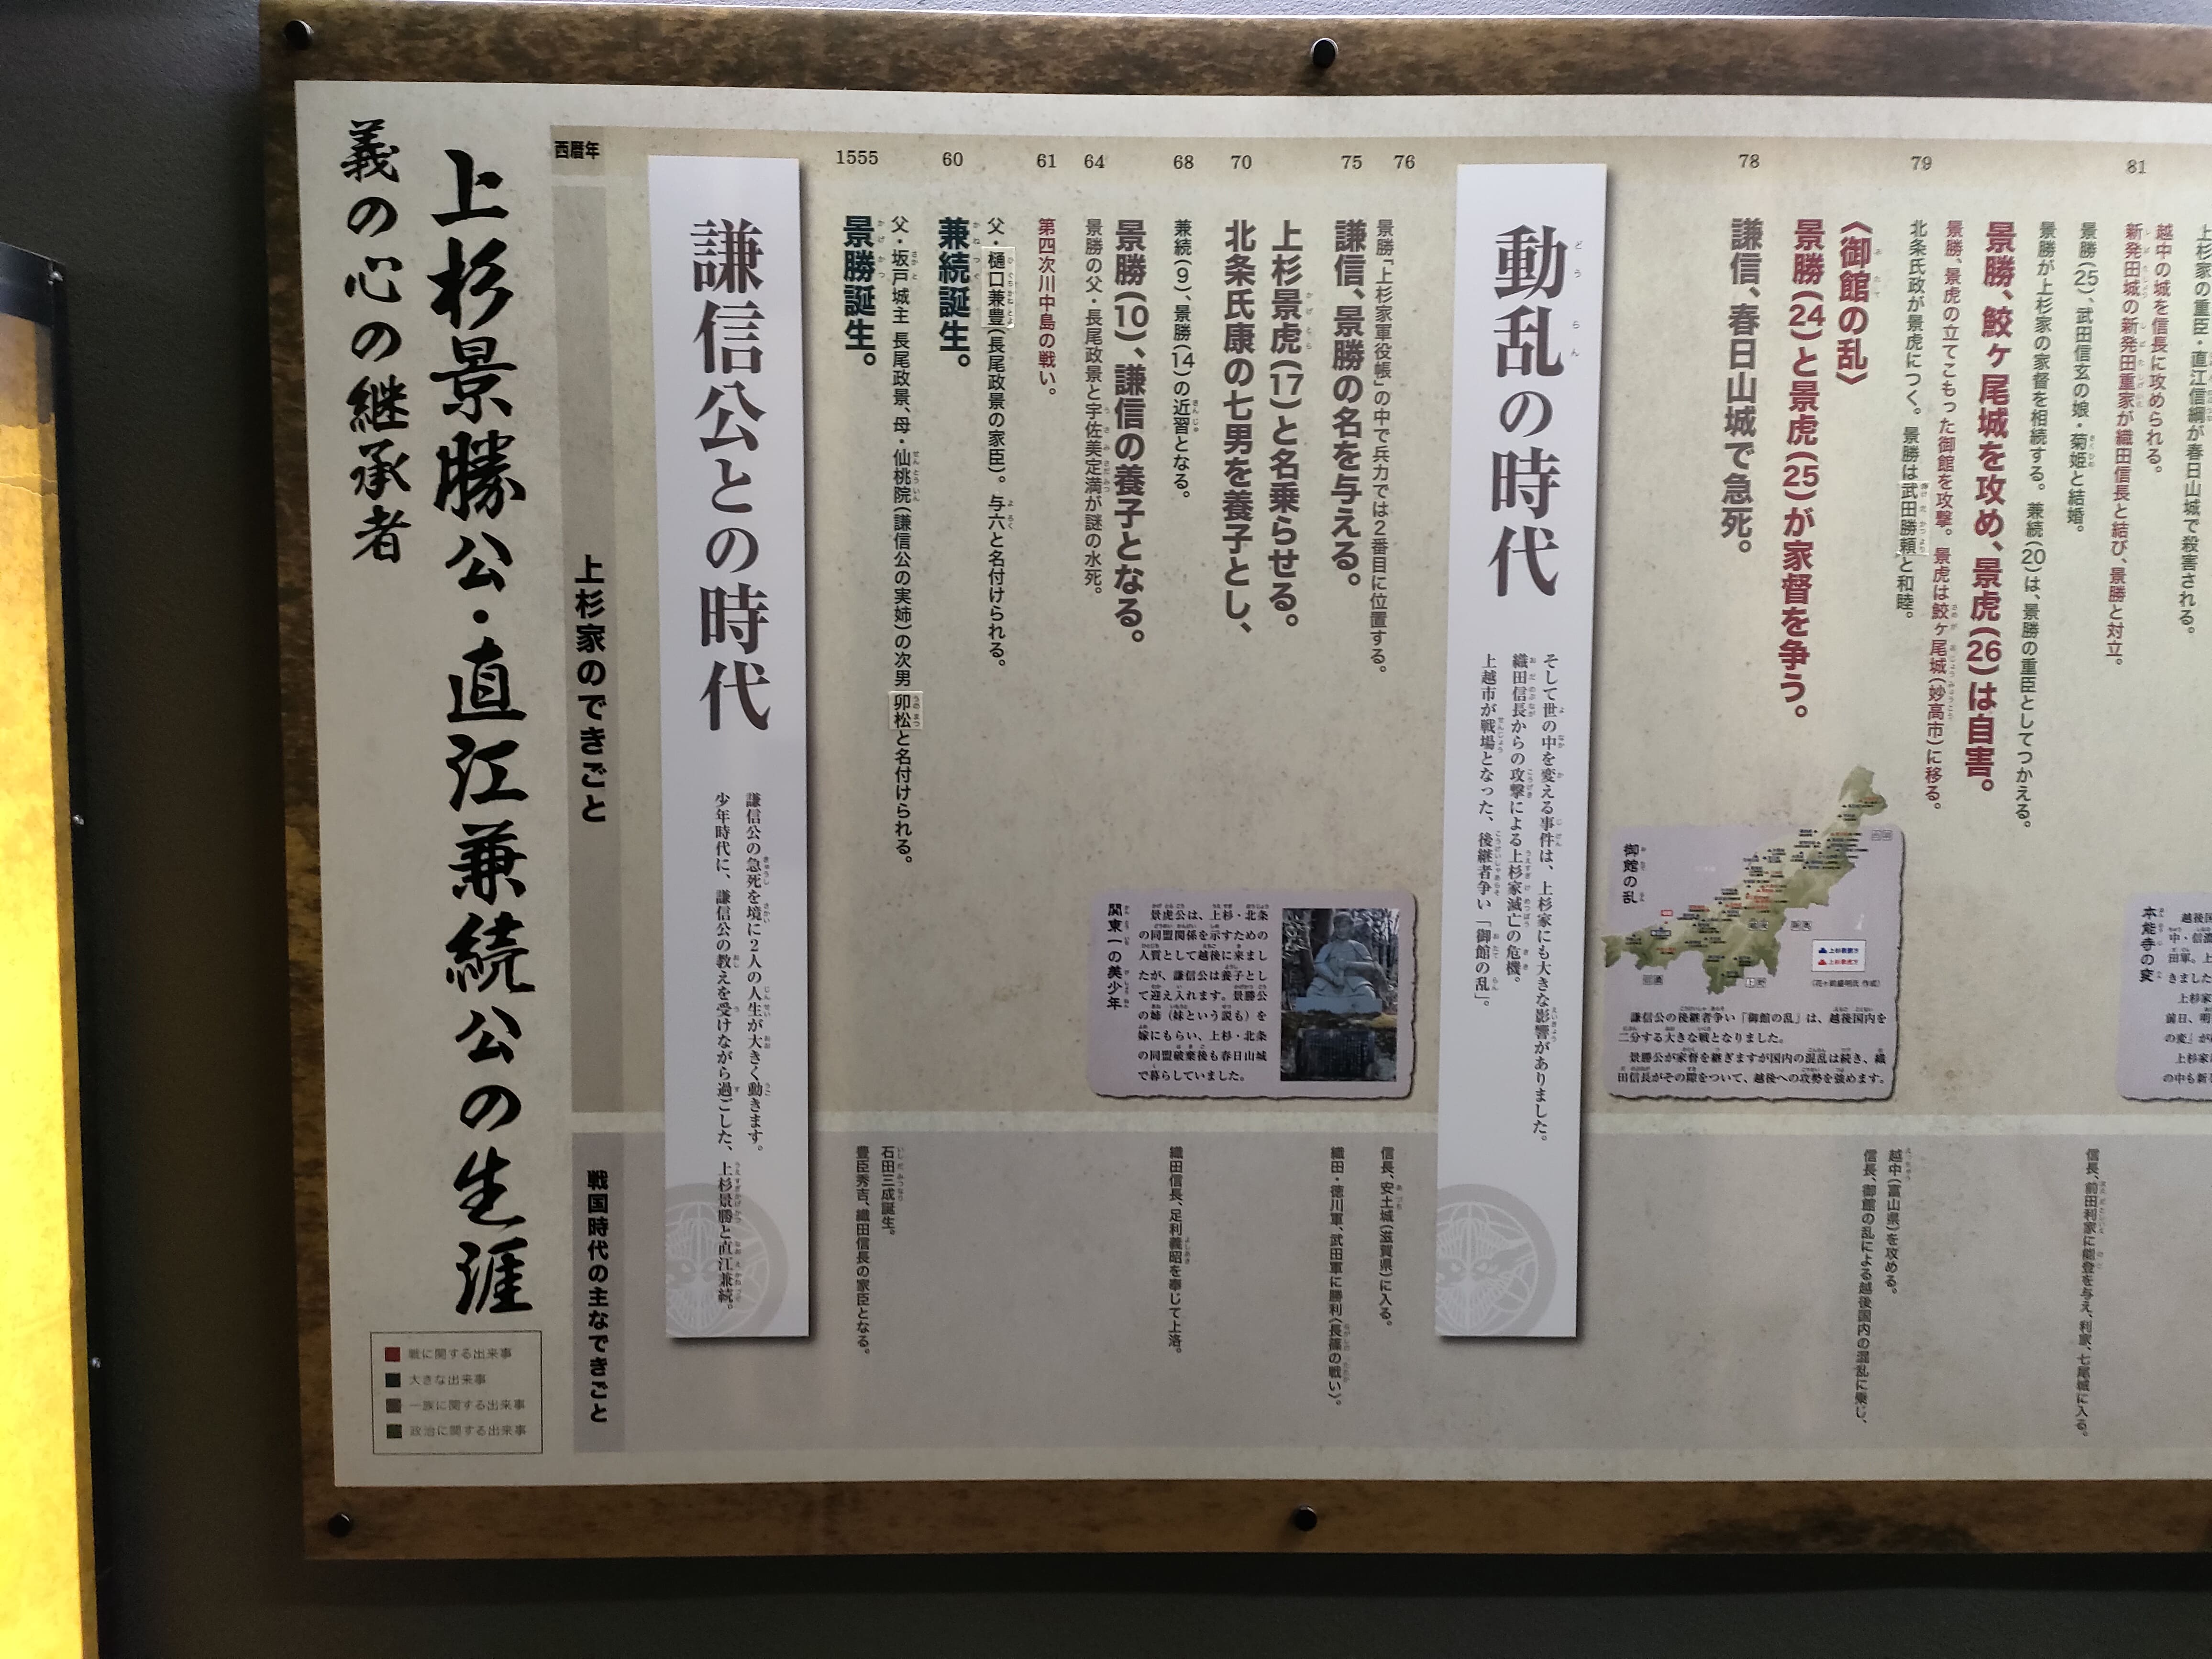 義の心の継承者
上杉景勝公・直江兼続公の生涯
戦に関する出来事
大きな出来事
一族に関する出来事
政治に関する出来事
西暦年
上杉家のできごと
戦国時代の主なできごと
謙信公との時代
謙信公の急死を境に2人の人生が大きく動きます。
少年時代に、謙信公の教えを受けながら過ごした、上杉景勝と直江兼続。
1555
景勝誕生。
父・坂戸城主 長尾政景、母・仙桃院(謙信公の実姉)の次男 卯松と名付けられる。
60
兼続誕生。
父・樋口兼豊(長尾政景の家臣)。与六と名付けられる。
61
第四次川中島の戦い。
64
景勝の父・長尾政景と宇佐美定満が謎の水死。
景勝(10)、謙信の養子となる。
68
兼続(9)、景勝(14)の近習となる。
70
北条氏康の七男を養子とし、
上杉景虎(17)と名乗らせる。
75
謙信、景勝の名を与える。
景勝「上杉家軍役帳」の中で兵力では2番目に位置する。
76
関東一の美少年
景虎公は、上杉・北条
の同盟関係を示すための
人質として越後に来まし
たが、謙信公は養子とし
て迎え入れます。景勝公
の姉(妹という説も)を
嫁にもらい、上杉・北条
の同盟破棄後も春日山城
で暮らしていました。
豊臣秀吉、織田信長の家臣となる。
石田三成誕生。
織田信長、足利義昭を奉じて上洛。
織田・徳川軍、武田軍に勝利(長篠の戦い)。
信長、安土城(滋賀県)に入る。
動乱の時代
そして世の中を変える事件は、上杉家にも大きな影響がありました。
織田信長からの攻撃による上杉家滅亡の危機。
上越市が戦場となった、後継者争い「御館の乱」。
78
謙信、春日山城で急死。
〈御館の乱〉
景勝(24)と景虎(25)が家督を争う。
79
北条氏政が景虎につく。景勝は武田勝頼と和睦。
景勝、景虎の立てこもった御館を攻撃。景虎は鮫ヶ尾城(妙高市)に移る。
景勝、鮫ヶ尾城を攻め、景虎(26)は自害。
景勝が上杉家の家督を相続する。兼続(20)は、景勝の重臣としてつかえる。
景勝(25)、武田信玄の娘・菊姫と結婚。
81
新発田城の新発田重家が織田信長と結び、景勝と対立。
越中の城を信長に攻められる。
上杉家の重臣・直江信綱が春日山城で殺害される。
御館の乱
上杉景勝方
上杉景虎方
(花ヶ前盛明氏 作成)
謙信公の後継者争い「御館の乱」は、越後国内を
二分する大きな戦となりました。
景勝公が家督を継ぎますが国内の混乱は続き、織
田信長がその隙をついて、越後への攻勢を強めます。
信長、御館の乱による越後国内の混乱に乗じ、
越中(富山県)を攻める。
信長、前田利家に能登を与え、利家、七尾城に入る。
本能寺の変
越後国
中・信濃
田軍。上
きました
上杉家
前日、明
の変」が
上杉家
の中も新